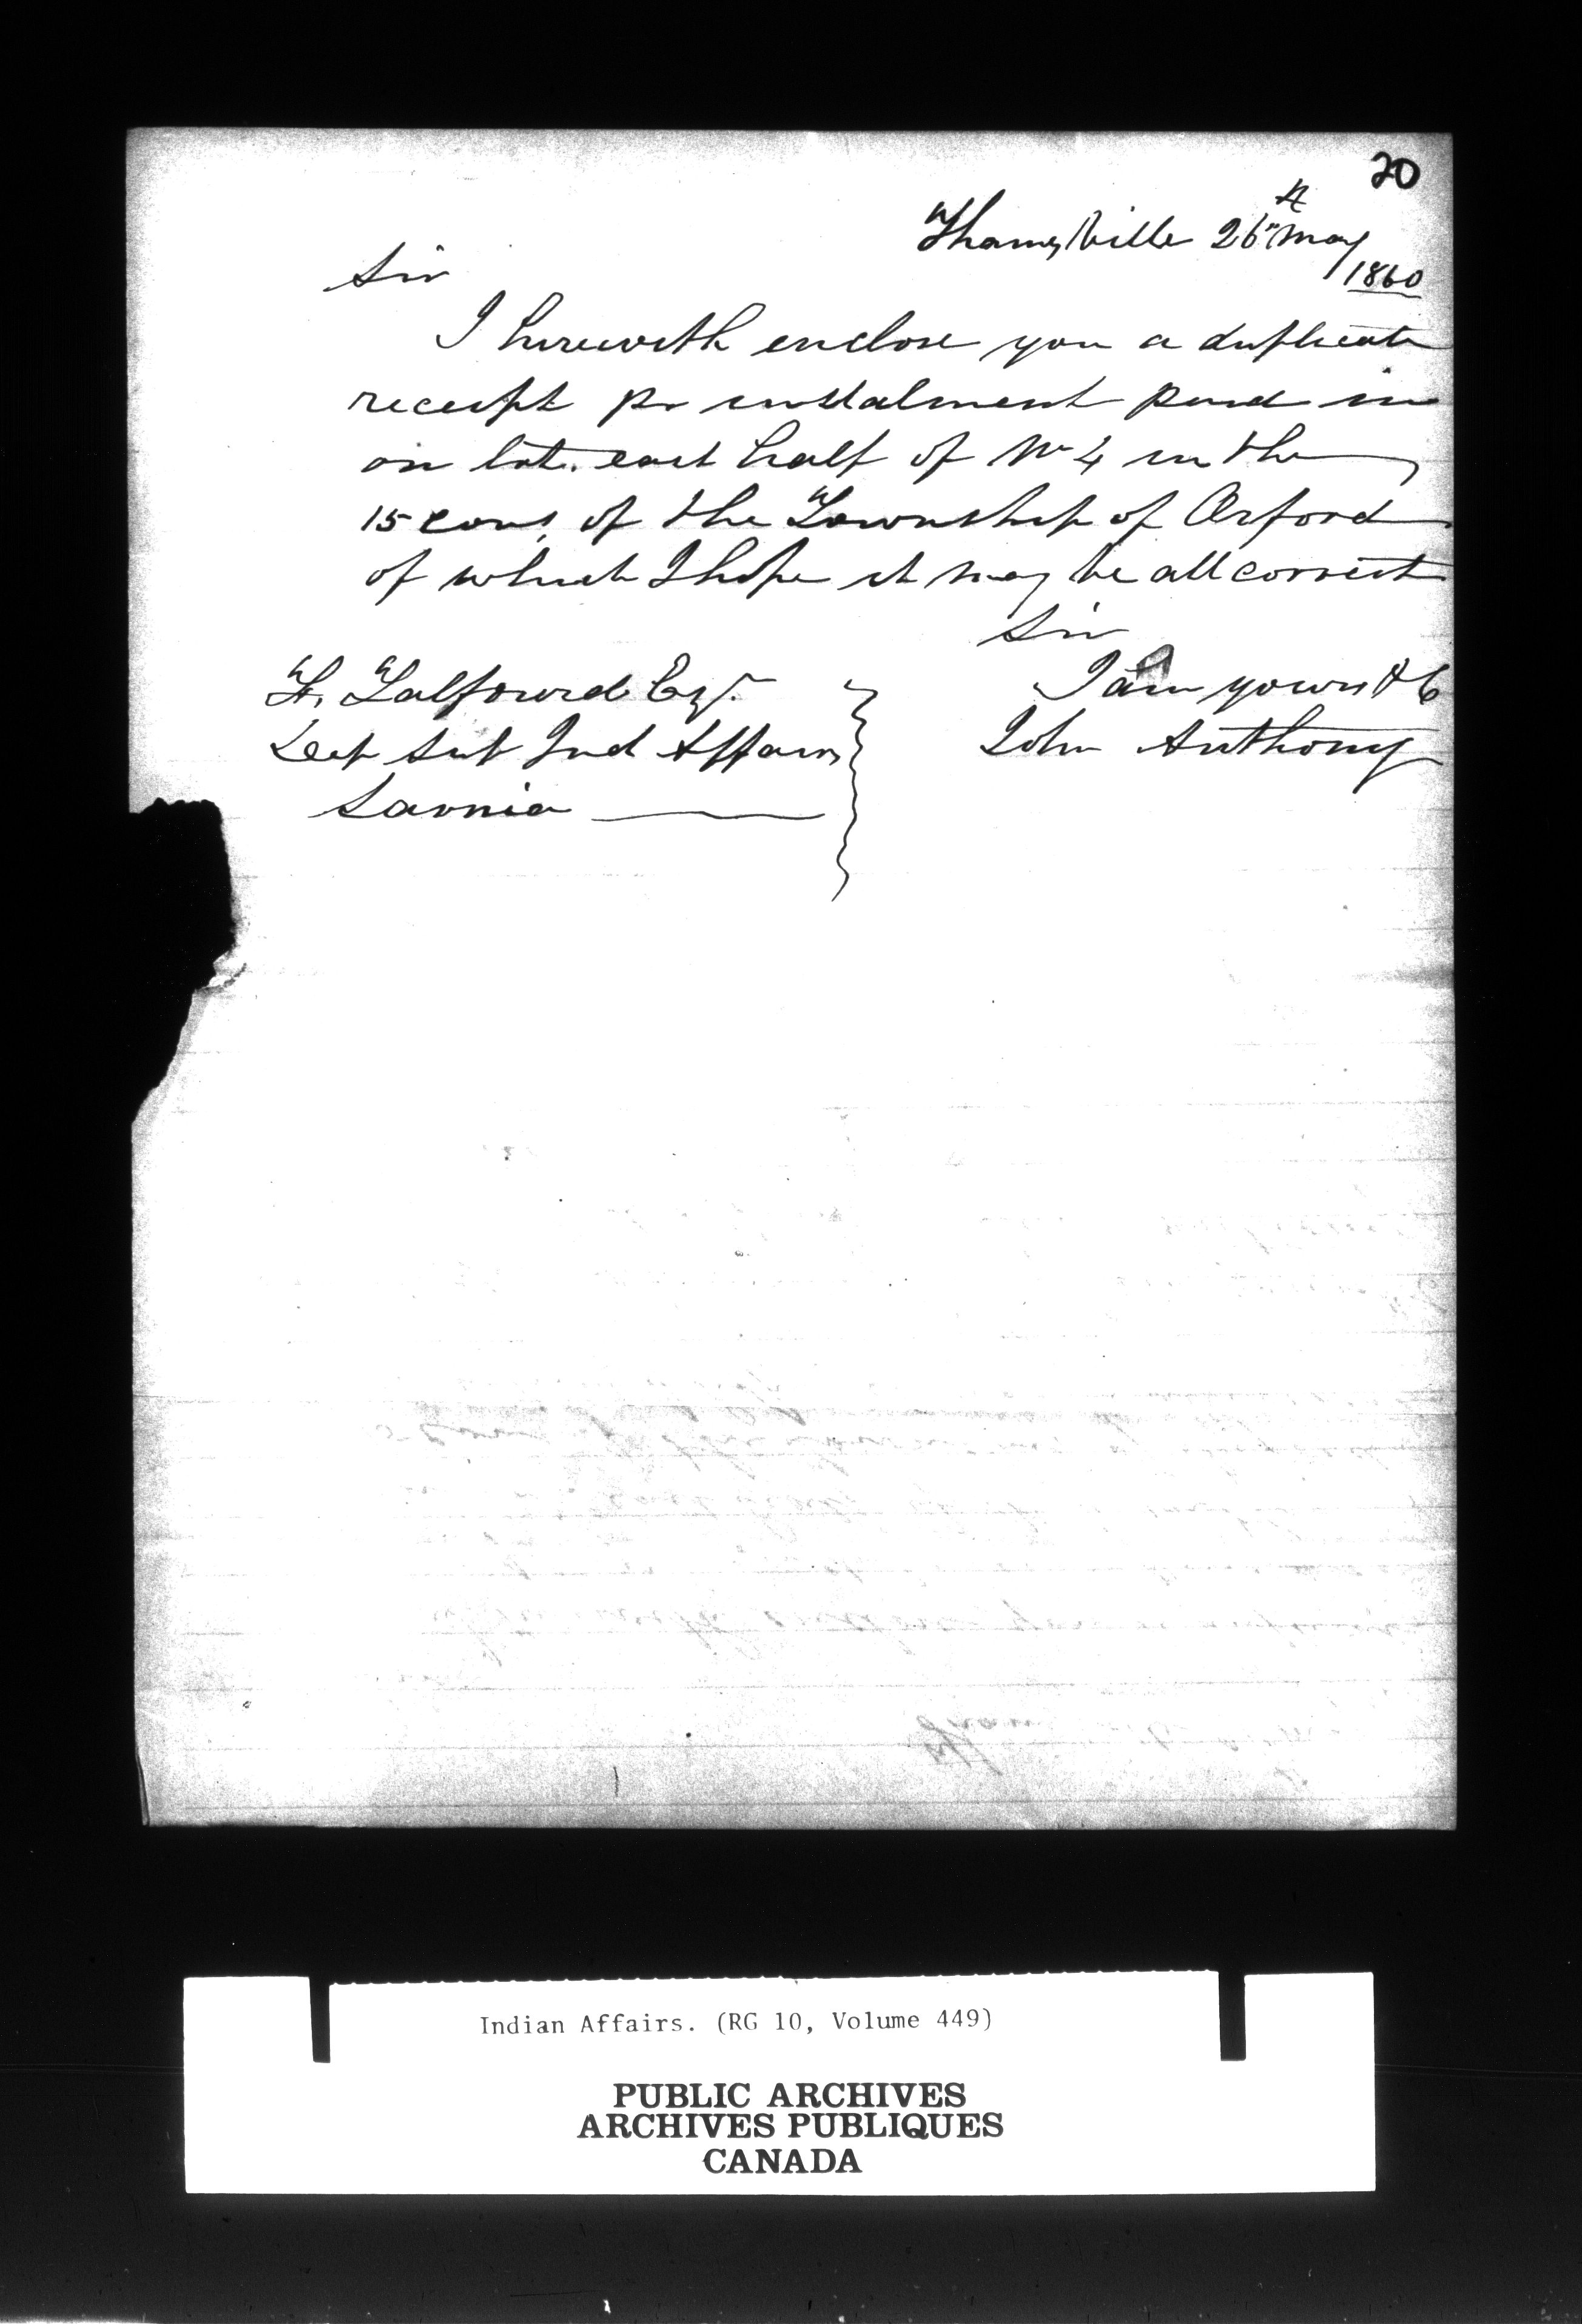 20
Thamesville 26th May
1860
Sir
I herewith enclose you a duplicate
receipt pr instalment paid in
on lot. east half of No 4 in the
15 cons, of the Township of Orford
of which I hope it may be all correct
Sir
I am yours &c
John Anthony
Fr, Talfourd Esqr.
Dep Sut Ind Affairs
Sarnia
Indian Affairs. (RG 10, Volume 449)
PUBLIC ARCHIVES
ARCHIVES PUBLIQUES
CANADA